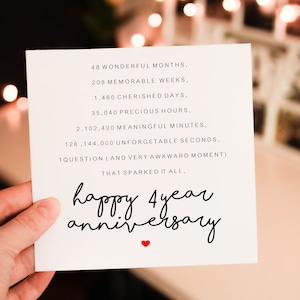 48 WONDERFUL MONTHS,
208 MEMORABLE WEEKS,
1,460 CHERISHED DAYS,
35,040 PRECIOUS HOURS,
2,102,400 MEANINGFUL MINUTES,
126,144,000 UNFORGETABLE SECONDS,
1QUESTION (AND VERY AWKWARD MOMENT)
THAT SPARKED IT ALL,
happy 4 year
anniversary